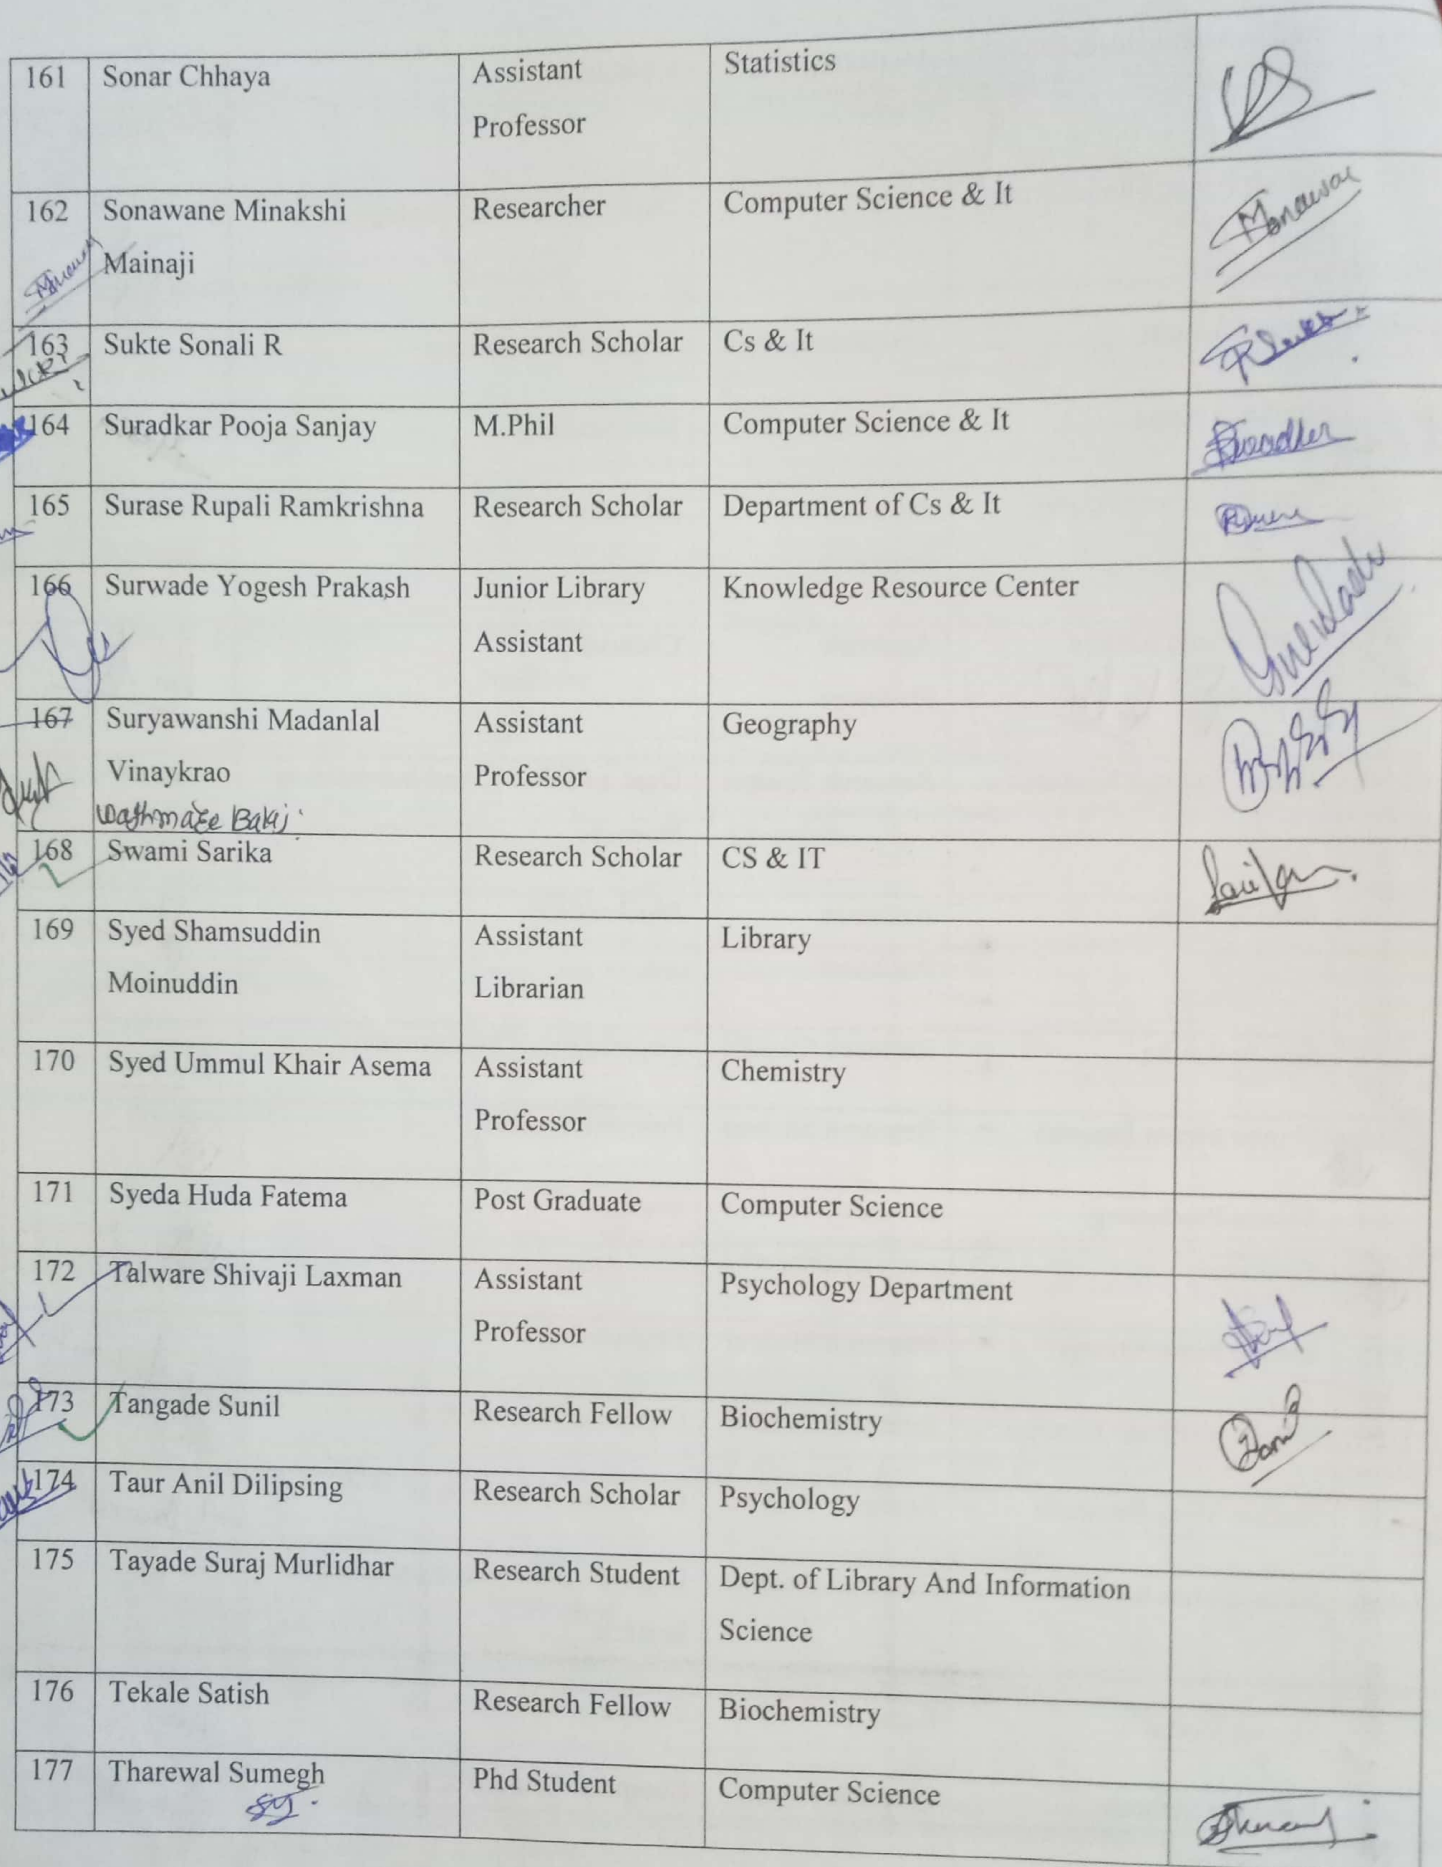 161 Sonar Chhaya Assistant Statistics
Professor
162 Sonawane Minakshi Researcher Computer Science & It
Mainaji
163 Sukte Sonali R Research Scholar Cs & It
164 Suradkar Pooja Sanjay M.Phil Computer Science & It
165 Surase Rupali Ramkrishna Research Scholar Department of Cs & It
166 Surwade Yogesh Prakash Junior Library Knowledge Resource Center
Assistant
167 Suryawanshi Madanlal Assistant Geography
Vinaykrao Professor
168 Swami Sarika Research Scholar CS & IT
169 Syed Shamsuddin Assistant Library
Moinuddin Librarian
170 Syed Ummul Khair Asema Assistant Chemistry
Professor
171 Syeda Huda Fatema Post Graduate Computer Science
172 Talware Shivaji Laxman Assistant Psychology Department
Professor
173 Tangade Sunil Research Fellow Biochemistry
174 Taur Anil Dilipsing Research Scholar Psychology
175 Tayade Suraj Murlidhar Research Student Dept. of Library And Information
Science
176 Tekale Satish Research Fellow Biochemistry
177 Tharewal Sumegh Phd Student Computer Science